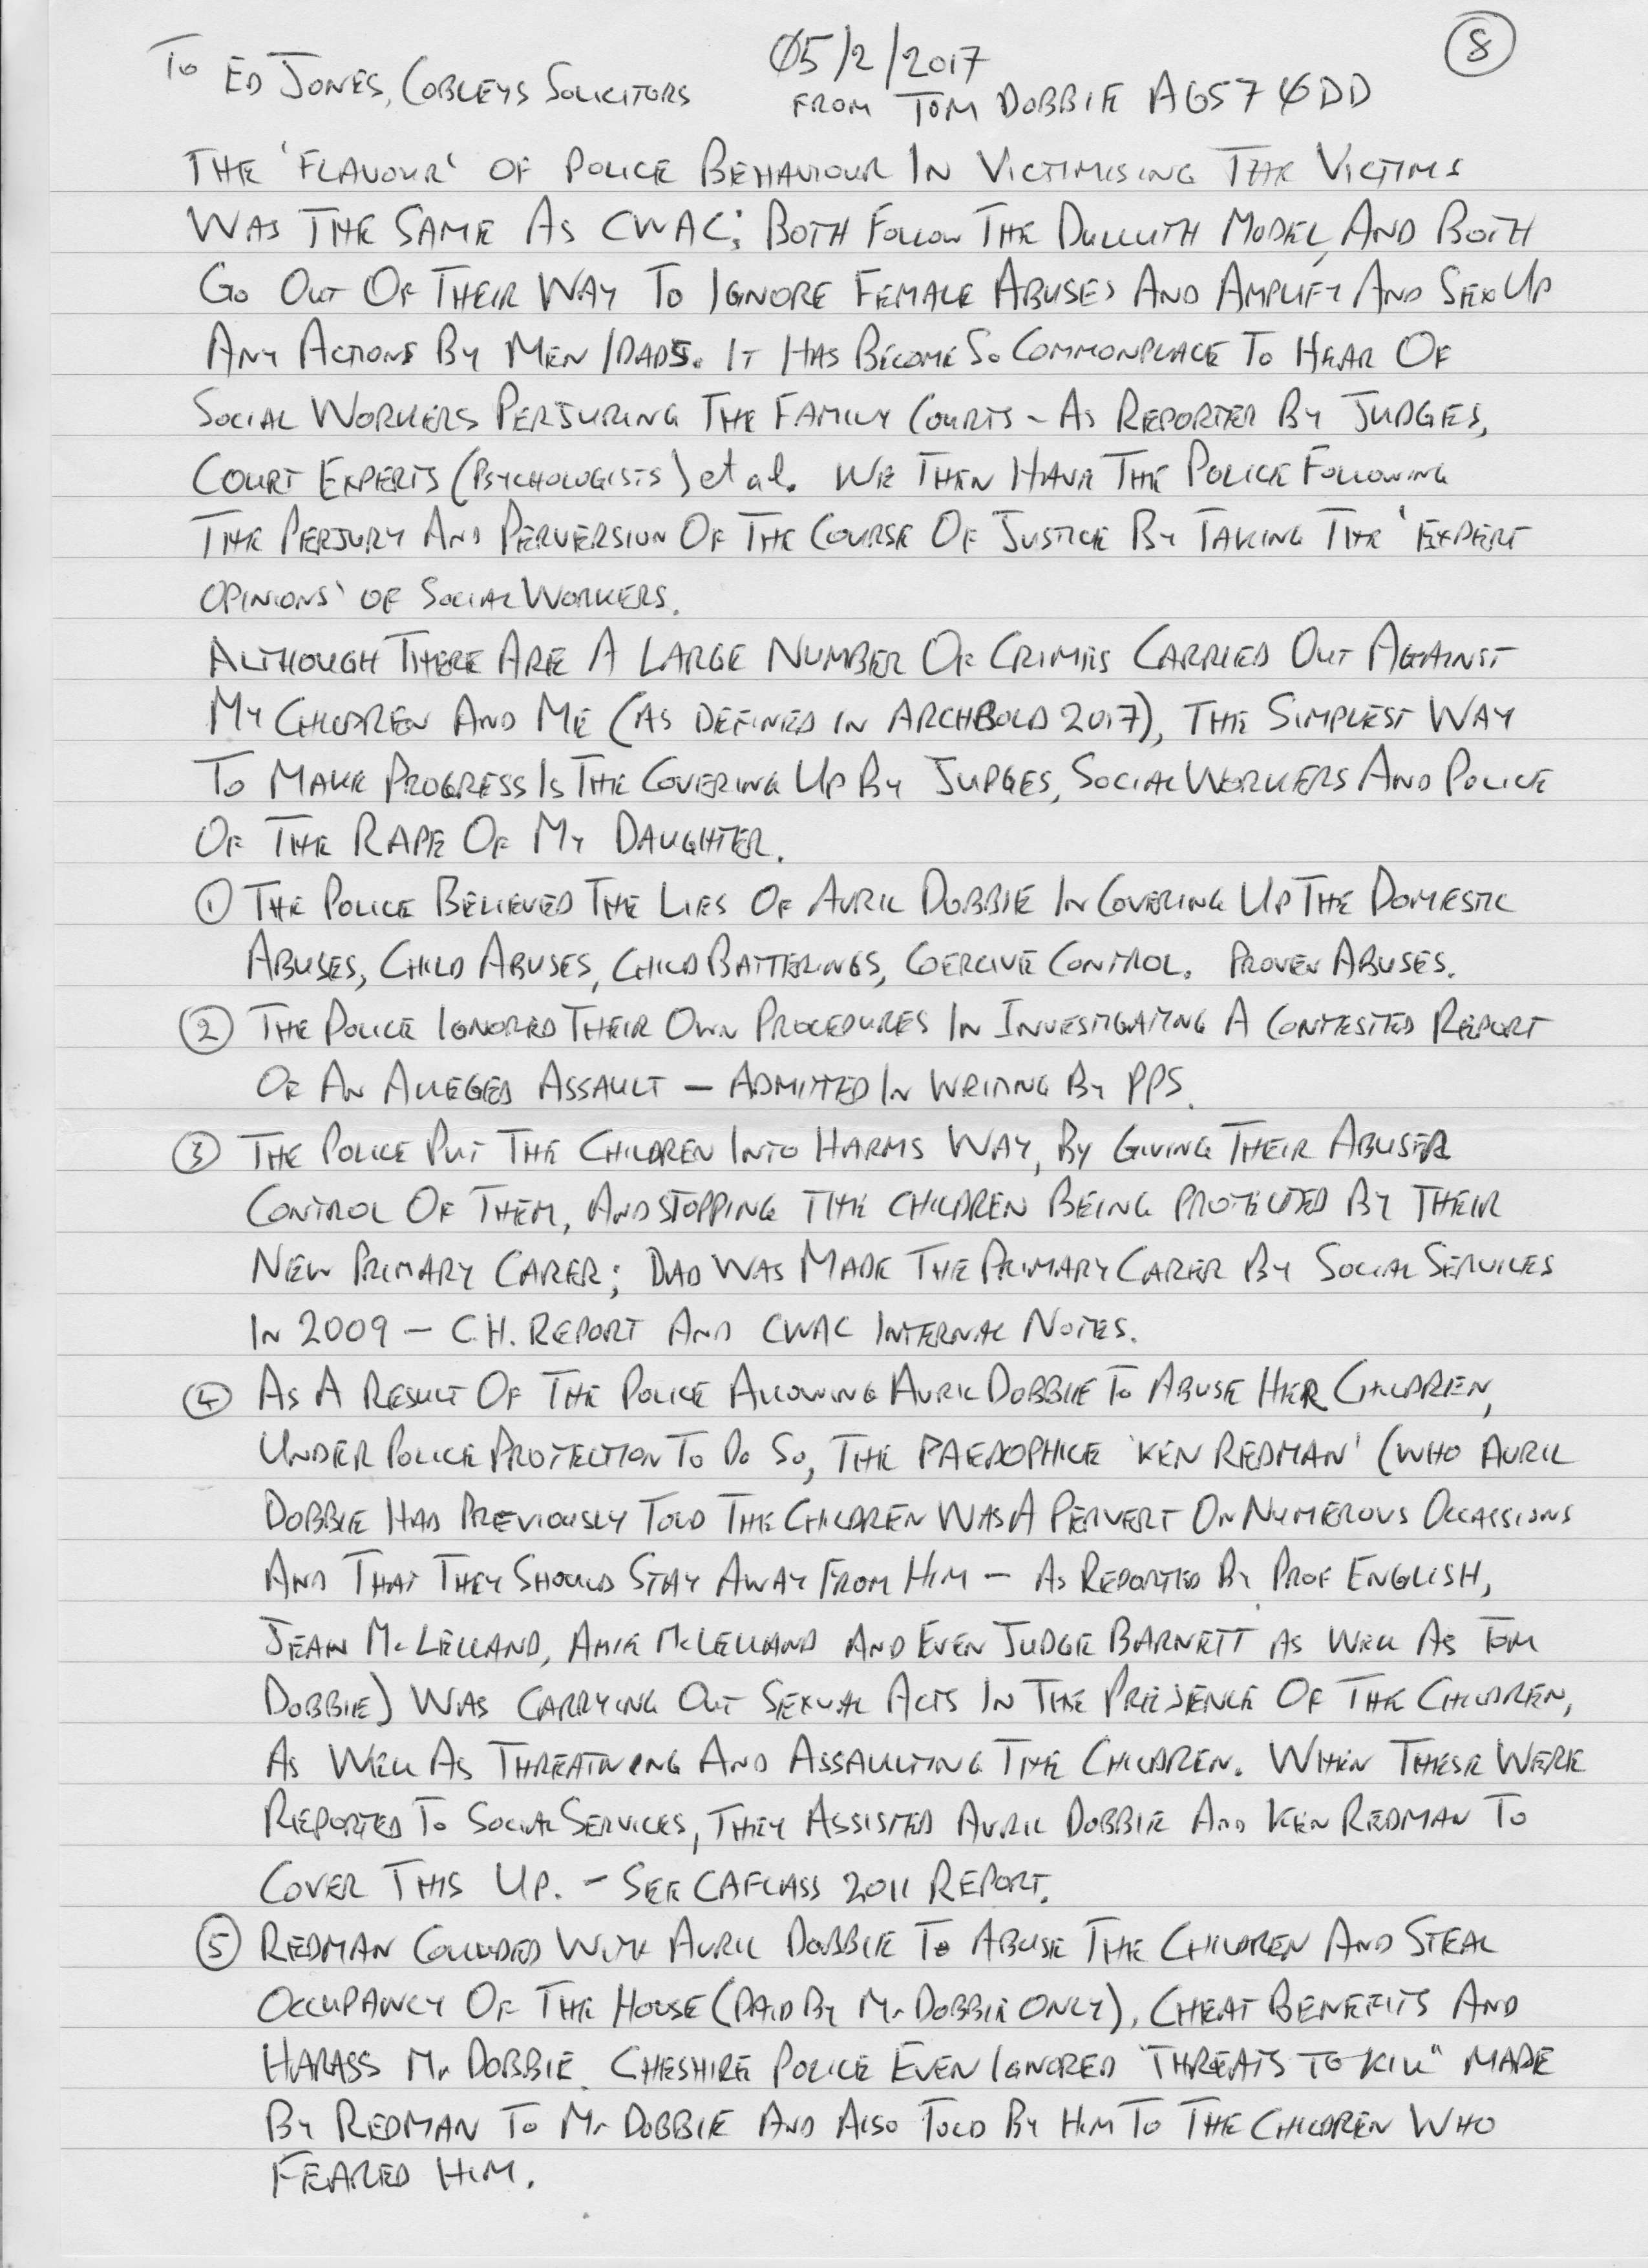 ⑧
To ED JONES, COBLEYS SOLICITORS
05/2/2017
FROM TOM DOBBIE A6570DD
THE 'FLAVOUR' OF POLICE BEHAVIOUR IN VICTIMISING THE VICTIMS
WAS THE SAME AS CWAC; BOTH FOLLOW THE DULLUTH MODEL, AND BOTH
GO OUT OF THEIR WAY TO IGNORE FEMALE ABUSES AND AMPLIFY AND SEX UP
ANY ACTIONS BY MEN/DADS. IT HAS BECOME SO COMMONPLACE TO HEAR OF
SOCIAL WORKERS PERJURING THE FAMILY COURTS - AS REPORTED BY JUDGES,
COURT EXPERTS (PSYCHOLOGISTS) et al. WE THEN HAVE THE POLICE FOLLOWING
THE PERJURY AND PERVERSION OF THE COURSE OF JUSTICE BY TAKING THE 'EXPERT
OPINIONS' OF SOCIAL WORKERS.
ALTHOUGH THERE ARE A LARGE NUMBER OF CRIMES CARRIED OUT AGAINST
MY CHILDREN AND ME (AS DEFINED IN ARCHBOLD 2017), THE SIMPLEST WAY
TO MAKE PROGRESS IS THE COVERING UP BY JUDGES, SOCIAL WORKERS AND POLICE
OF THE RAPE OF MY DAUGHTER.
① THE POLICE BELIEVED THE LIES OF AVRIL DOBBIE IN COVERING UP THE DOMESTIC
ABUSES, CHILD ABUSES, CHILD BATTERINGS, COERCIVE CONTROL. PROVEN ABUSES.
② THE POLICE IGNORED THEIR OWN PROCEDURES IN INVESTIGATING A CONTESTED REPORT
OF AN ALLEGED ASSAULT - ADMITTED IN WRITING BY PPS.
③ THE POLICE PUT THE CHILDREN INTO HARMS WAY, BY GIVING THEIR ABUSER
CONTROL OF THEM, AND STOPPING THE CHILDREN BEING PROTECTED BY THEIR
NEW PRIMARY CARER; DAD WAS MADE THE PRIMARY CARER BY SOCIAL SERVICES
IN 2009 - C.H. REPORT AND CWAC INTERNAL NOTES.
④ AS A RESULT OF THE POLICE ALLOWING AVRIL DOBBIE TO ABUSE HER CHILDREN,
UNDER POLICE PROTECTION TO DO SO, THE PAEDOPHILE 'KEN REDMAN' (WHO AVRIL
DOBBIE HAD PREVIOUSLY TOLD THE CHILDREN WAS A PERVERT ON NUMEROUS OCCASSIONS
AND THAT THEY SHOULD STAY AWAY FROM HIM - AS REPORTED BY PROF ENGLISH,
JEAN McLELLAND, AMIE McLELLAND AND EVEN JUDGE BARNETT AS WELL AS TOM
DOBBIE) WAS CARRYING OUT SEXUAL ACTS IN THE PRESENCE OF THE CHILDREN,
AS WELL AS THREATNING AND ASSAULTING THE CHILDREN. WHEN THESE WERE
REPORTED TO SOCIAL SERVICES, THEY ASSISTED AVRIL DOBBIE AND KEN REDMAN TO
COVER THIS UP. - SEE CAFCASS 2011 REPORT.
⑤ REDMAN COLLUDED WITH AVRIL DOBBIE TO ABUSE THE CHILDREN AND STEAL
OCCUPANCY OF THE HOUSE (PAID BY Mr DOBBIE ONLY), CHEAT BENEFITS AND
HARASS Mr DOBBIE. CHESHIRE POLICE EVEN IGNORED "THREATS TO KILL" MADE
BY REDMAN TO Mr DOBBIE AND ALSO TOLD BY HIM TO THE CHILDREN WHO
FEARED HIM.